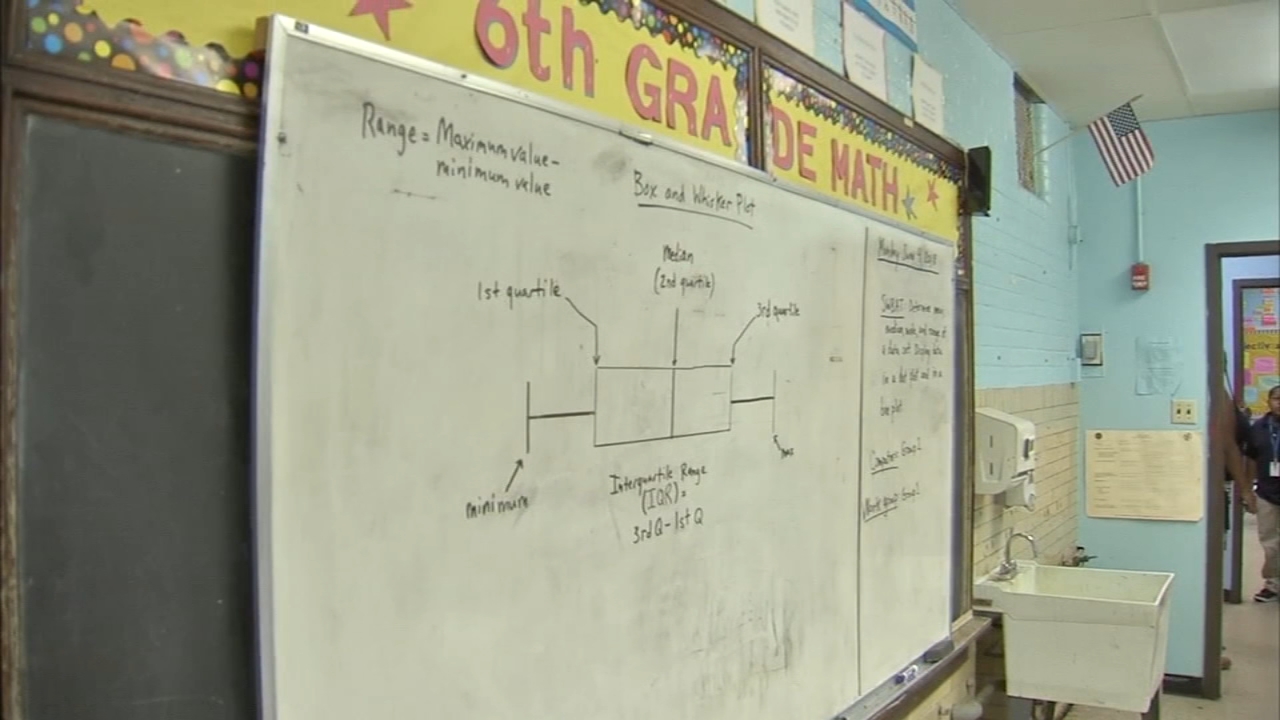 6th GRADE MATH
Range = Maximum value -
minimum value
Box and Whisker Plot
Median
(2nd quartile)
1st quartile
3rd quartile
max
minimum
Interquartile Range
(IQR) =
3rd Q - 1st Q
Monday June 4
SWBAT: Determine mean,
median, mode, and range of
a data set. Display data
in a dot plot and in a
box plot
Computers: Group 2
Group 1